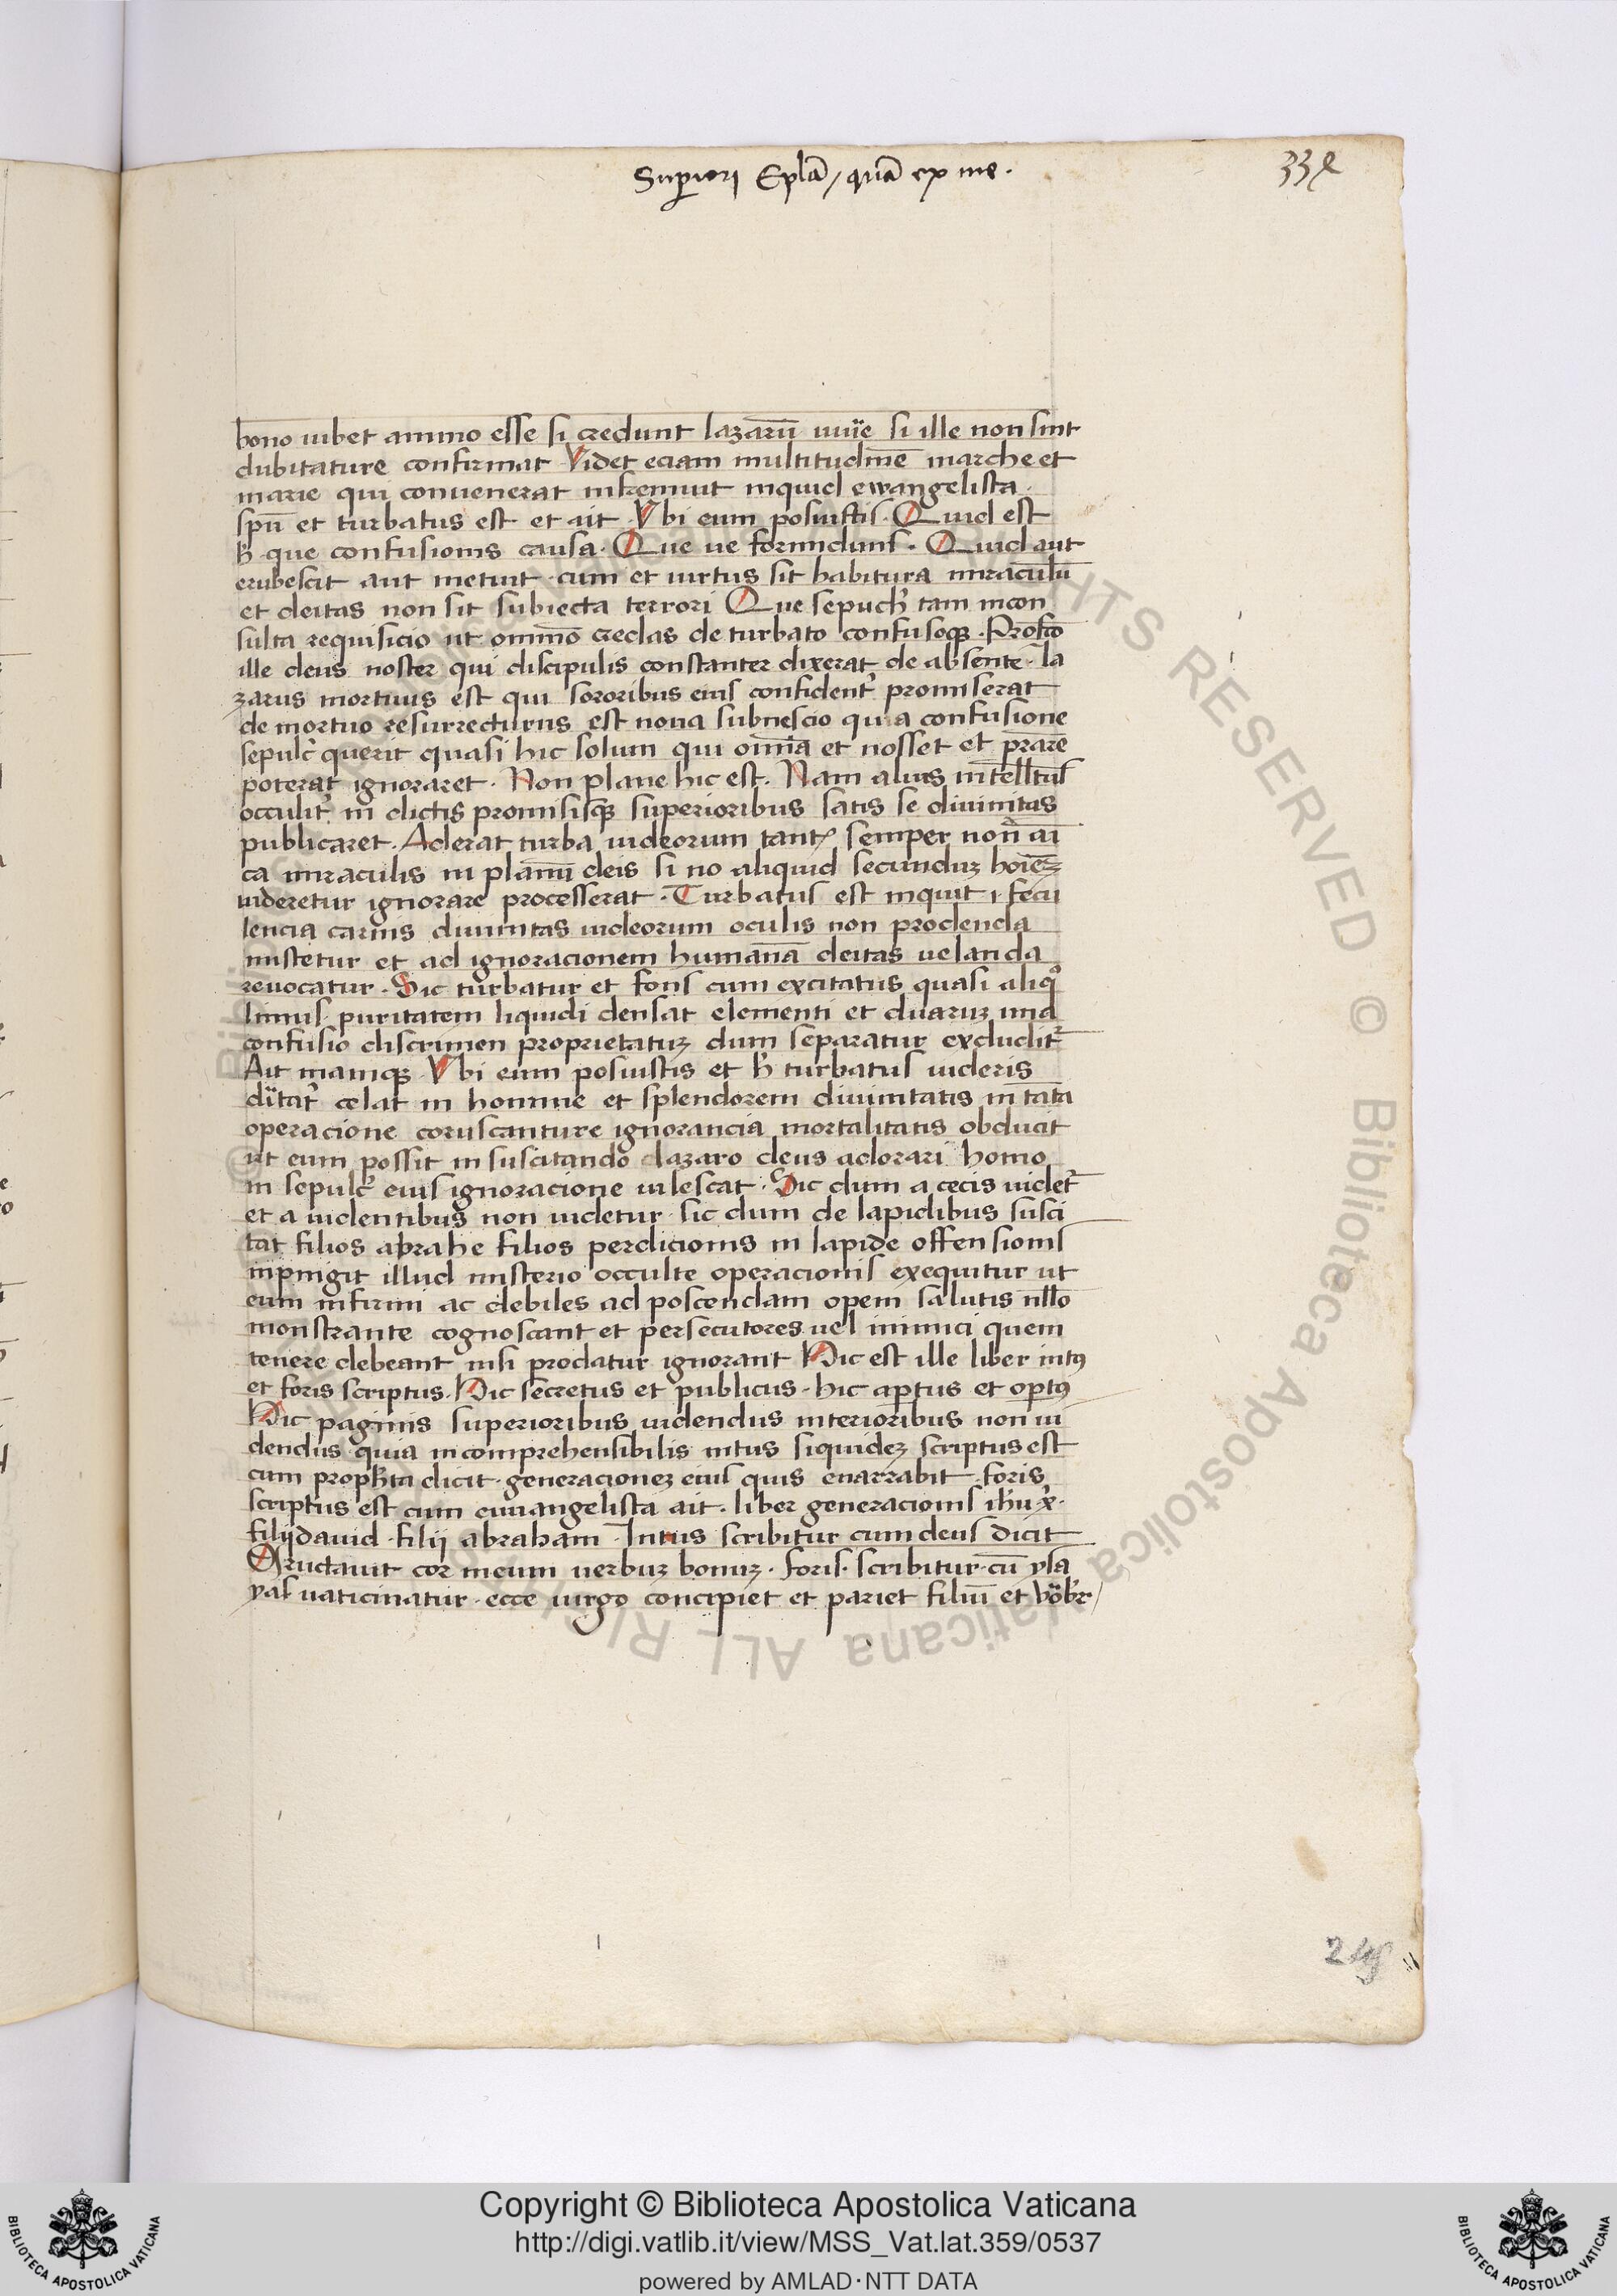 Suꝑiori Epl̄a / quā ex me .
332
bono iubet animo esse si credunt lazarū uiuēe si ille non sint
dubitature confirmat Videt eciam multitudinē marche et
marie qui conuenerat infremuit inquid ewangelista .
spū et turbatus est et ait . Vbi eum posuistis . Quid est
h̄ . que confusionis causa . Que ue formidinis . Quid aut
erubescit aut metuit . cum et uirtus sit habitura miraculū
et deitas non sit subiecta terrori Que sepulch̄ tam incon
sulta requisicio ut omnino credas de turbato confusoqꝫ . Profcō
ille deus noster qui discipulis constanter dixerat de absente . la
zarus mortuus est qui sororibus eius confident̄ promiserat
de mortuo resurrecturus est noua subnescio qua confusione
sepulc̄ querit quasi hic solum qui omnia et nosset et p̄rare
poterat ignoraret . Non plane hic est . Nam alius intell̄tus
occulit̄ in dictis promisisqꝫ superioribus satis se diuinitas
publicaret . Aderat turba iudeorum tant semper non
ca miraculis in deis si no aliquid secunduꝫ hoīeꝫ
uideretur ignorare processerat . Turbatus est inquit ⁊ fecu
lencia carnis diuinitas iudeorum oculis non prodenda
mistetur et ad ignoracionem humanā deitas uelanda
reuocatur . Sic turbatur et fons cum excitatus quasi aliqͦ
limus puritatem liquidi densat elementi et duaruꝫ una
confusio discrimen proprietatuꝫ dum separatur excludit̄
Ait namqꝫ Vbi eum posuistis et h̄ turbatus uideris
celat in homine et splendorem diuinitatis in tāta
operacione coruscanture ignorancia mortalitatis obducit
ut eum possit in suscitando lazaro deus adorari homo
in sepulc̄ eius ignoracione uilescat . Sic dum a cecis uidet̄
et a uidentibus non uidetur sic dum de lapidibus susci
tat filios abrahe filios perdicionis in lapide offensionis
inpingit illud misterio occulte operacionis exequitur ut
eum infirmi ac debiles ad poscendam opem salutis nll̄o
monstrante cognoscant et persecutores uel inimici quem
tenere debeant nisi prodatur ignorant Hic est ille liber intꝰ
et foris scriptus . Hic secretus et publicus . hic aꝑtus et oꝑtꝰ
Hic paginis superioribus uidendus interioribus non ui
dendus quia incomprehensibilis intus siquideꝫ scriptus est
cum proph̄ta dicit . generacioneꝫ eius quis enarrabit . foris
scriptus est cum euuangelista ait . liber generacionis ih̄u x̄ .
filij dauid . filij abraham . Intus scribitur cum deus dicit
Eructauit cor meum uerbuꝫ bonuꝫ . foris . scribitur . cū ysa
yas uaticinatur . ecce uirgo concipiet et pariet filiū et uöbr̄
Copyright © Biblioteca Apostolica Vaticana
http://digi.vatlib.it/view/MSS_Vat.lat.359/0537
powered by AMLAD·NTT DATA
BIBLIOTECA APOSTOLICA VATICANA
BIBLIOTECA APOSTOLICA VATICANA
© Biblioteca Apostolica Vaticana ALL RIGHTS RESERVED